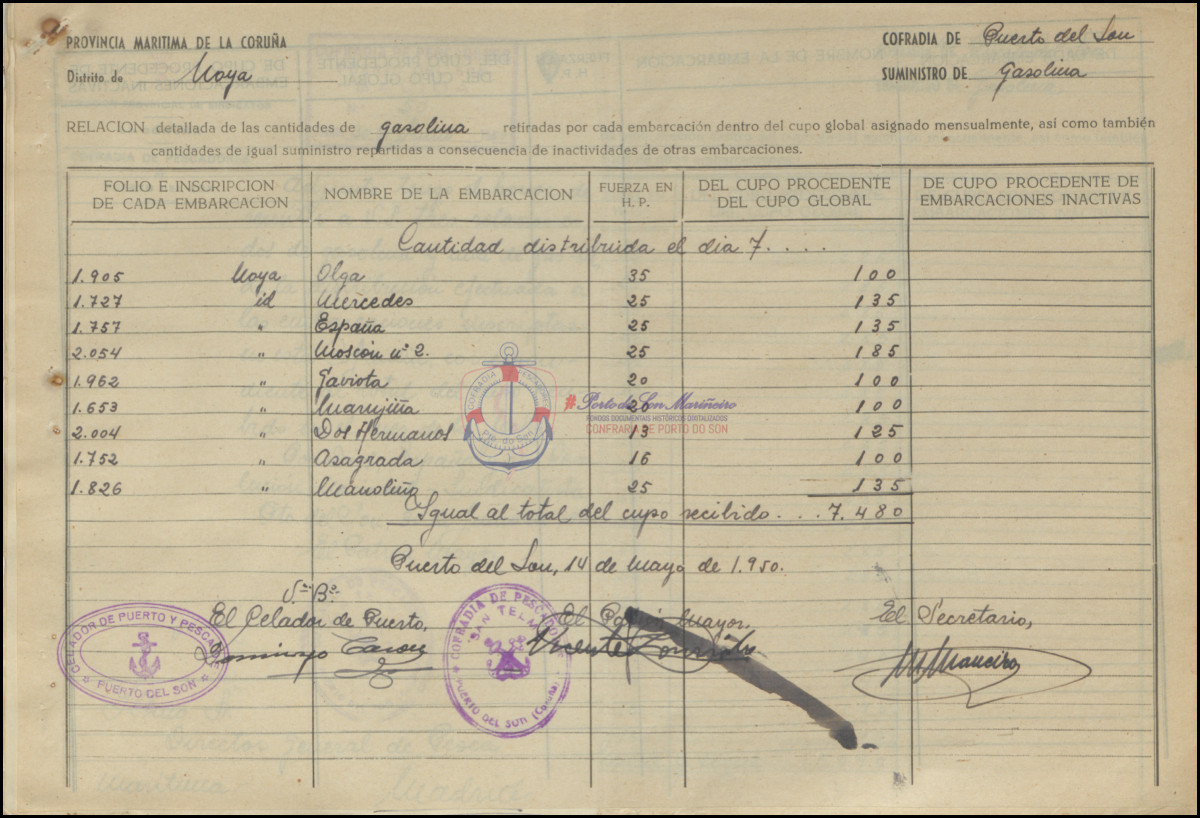 PROVINCIA MARITIMA DE LA CORUÑA
COFRADIA DE Puerto del Son
Distrito de Noya
SUMINISTRO DE Gasolina
RELACION detallada de las cantidades de gasolina retiradas por cada embarcación dentro del cupo global asignado mensualmente, así como también
cantidades de igual suministro repartidas a consecuencia de inactividades de otras embarcaciones.
FOLIO E INSCRIPCION DE CADA EMBARCACION NOMBRE DE LA EMBARCACION FUERZA EN H. P. DEL CUPO PROCEDENTE DEL CUPO GLOBAL DE CUPO PROCEDENTE DE EMBARCACIONES INACTIVAS
Cantidad distribuida el dia 7....
1.905 Noya Olga 35 100
1.727 id Mercedes 25 135
1.757 " España 25 135
2.054 " Moscón nº 2. 25 185
1.962 " Gaviota 20 100
1.653 " Marujiña 20 100
2.004 " Dos Hermanos 13 125
1.752 " Asagrada 16 100
1.826 " Manoliña 25 135
Igual al total del cupo recibido... 7.480
Puerto del Son, 14 de Mayo de 1.950.
Vº Bº
El Celador de Puerto, El Patrón Mayor, El Secretario,
Domingo
Vicente
M Maneiro
CELADOR DE PUERTO Y PESCA
PUERTO DEL SON
COFRADIA DE PESCADO
SAN TELMO
PUERTO DEL SON (Coruña)
COFRADIA
Pto. do Son
# Porto do Son Mariñeiro
FONDOS DOCUMENTAIS HISTÓRICOS DIGITALIZADOS
CONFRARÍA DE PORTO DO SON
Director general de Pesca
Maritima
Madrid